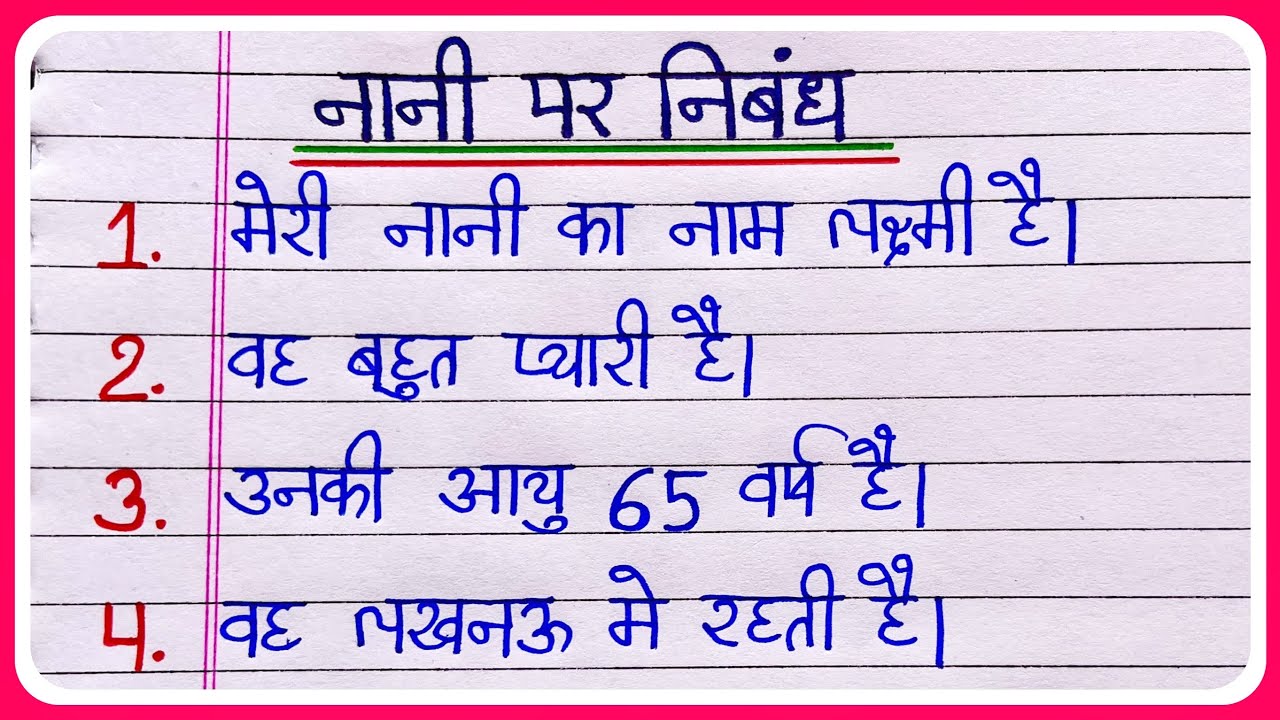 नानी पर निबंध
1. मेरी नानी का नाम लक्ष्मी है।
2. वह बहुत प्यारी है।
3. उनकी आयु 65 वर्ष है।
4. वह लखनऊ मे रहती है।